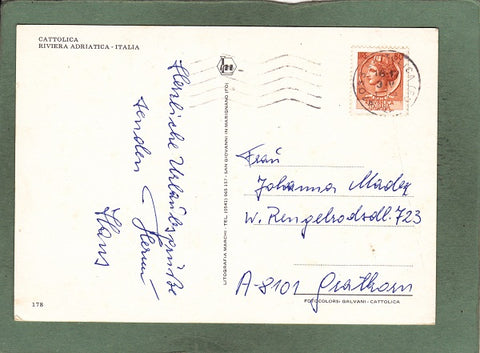 CATTOLICA
RIVIERA ADRIATICA - ITALIA
Herzliche Urlaubsgrüße
senden
Hans
178
LITOGRAFIA MARCHI - TEL. (0541) 665 337 - SAN GIOVANNI IN MARIGNANO (FO)
Frau
Johanna Mader
W. Rengelrodsdl. 723
A-8101 Gratkorn
FOTOCOLORS: GALVANI - CATTOLICA